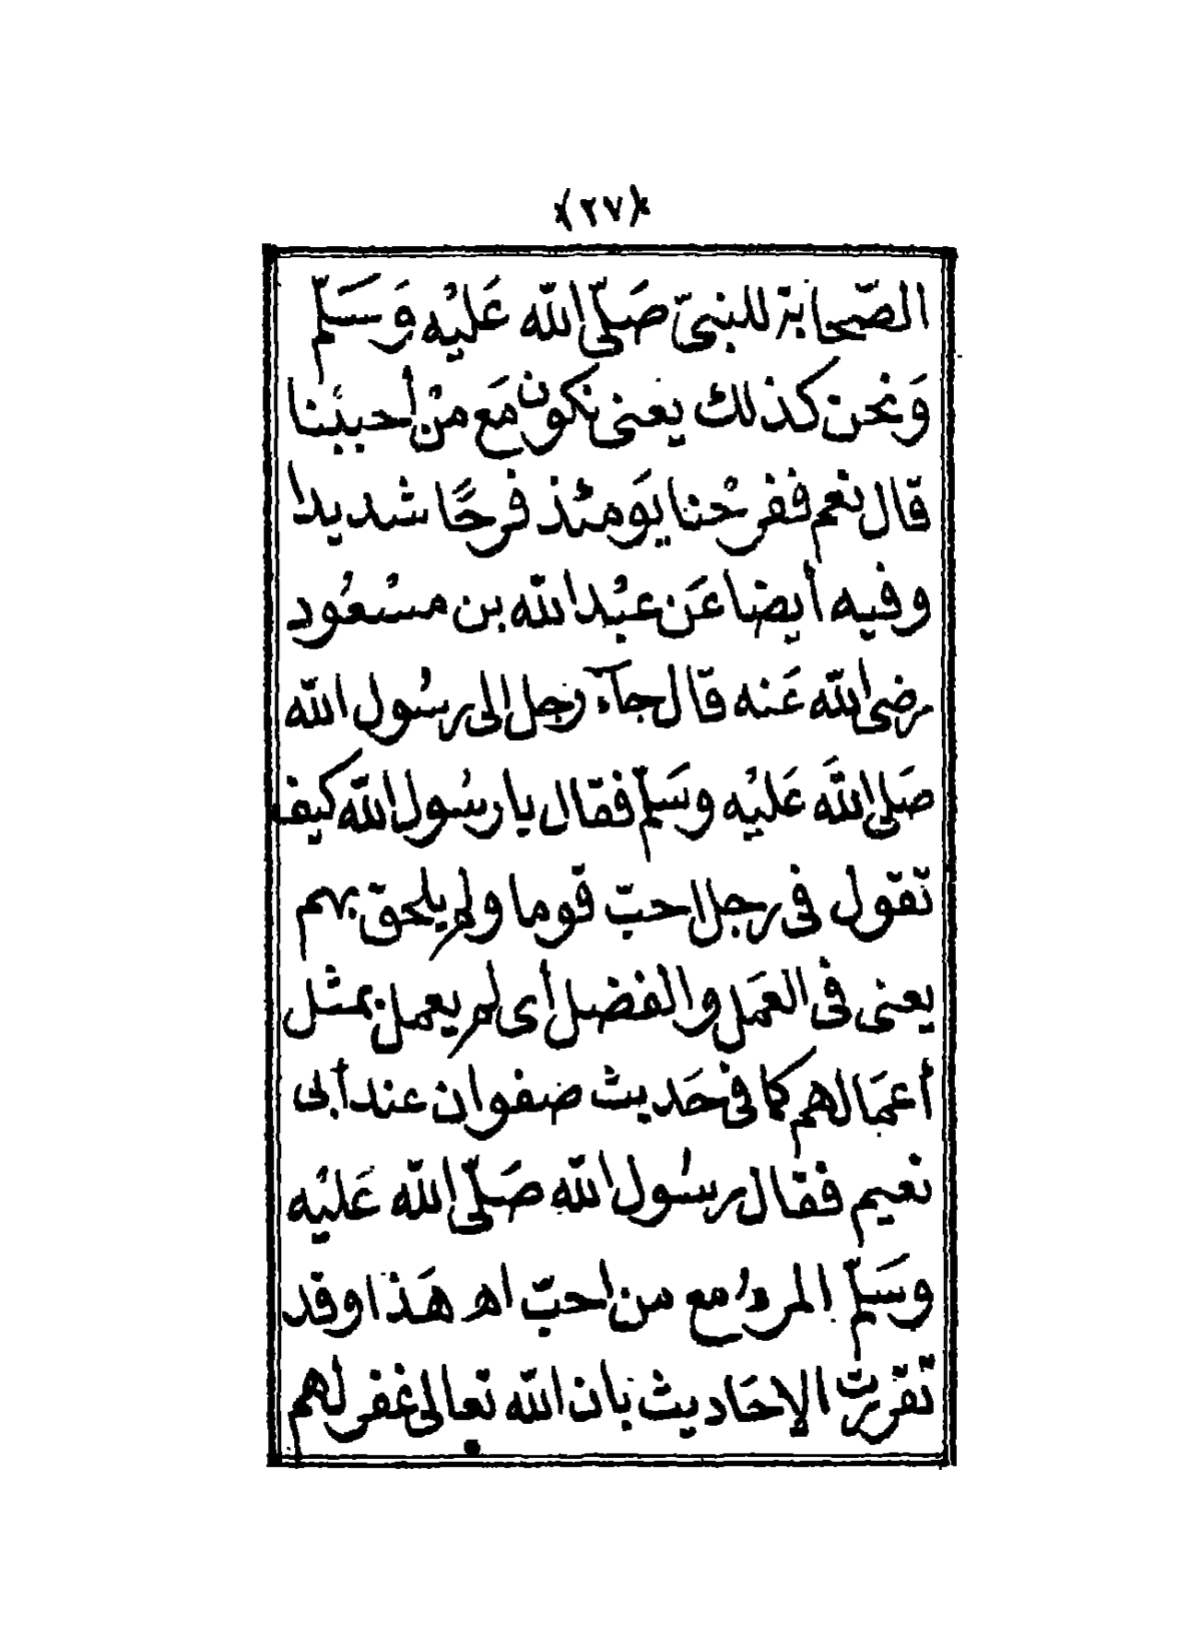 ﴿٢٧﴾
الصّحابة للنبىّ صَلّى الله عَليْه وَسَلّم
وَنحن كذلك يعنى نكون مَع منْ أحببَنا
قال نعم ففرحْنا يَومئذ فرحًا شديدا
وفيه أيضا عَن عبْد الله بن مسْعُود
رضى الله عَنه قال جآء رجل الى رسُول الله
صَلى اللهَ عَليْه وسَلّم فقال يا رسُول الله كيف
تقول فى رجل احبّ قوما ولم يلحق بهم
يعنى فى العَمل والفضل أى لم يعمل بمثل
أعمَالهم كما فى حَديث صفوان عند أبى
نعيم فقال رسُول الله صَلّى الله عَليْه
وسَلّم المرءُ مع من احبّ اه هَذا وقد
تقرّرت الاحَاديث بان الله تعالى غفر لهم